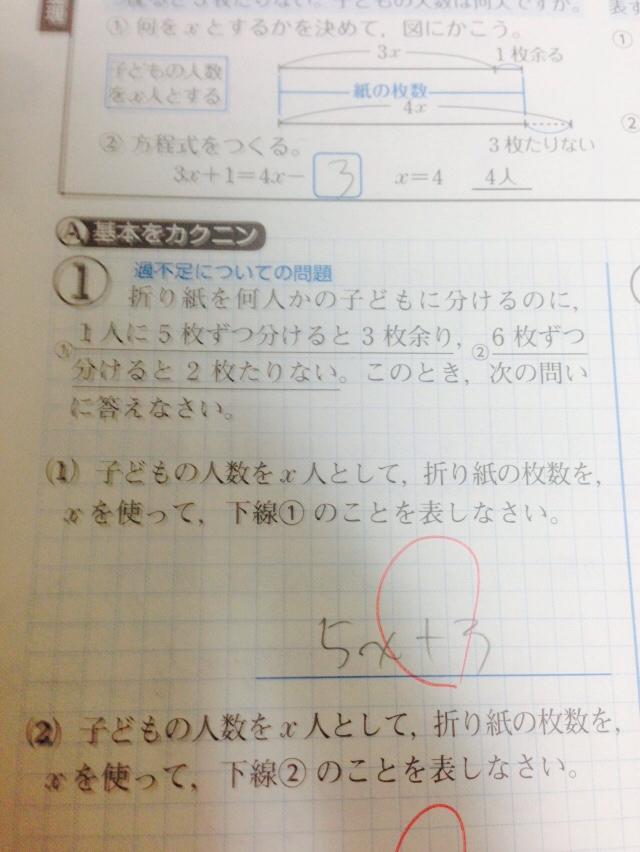 ① 何をxとするかを決めて，図にかこう。
子どもの人数
をx人とする
3x
1枚余る
紙の枚数
4x
3枚たりない
② 方程式をつくる。
3x+1=4x− 3 x=4 4人
A 基本をカクニン
1 過不足についての問題
折り紙を何人かの子どもに分けるのに，
①1人に5枚ずつ分けると3枚余り，②6枚ずつ
分けると2枚たりない。このとき，次の問い
に答えなさい。
(1) 子どもの人数をx人として，折り紙の枚数を，
xを使って，下線①のことを表しなさい。
5x+3
(2) 子どもの人数をx人として，折り紙の枚数を，
xを使って，下線②のことを表しなさい。